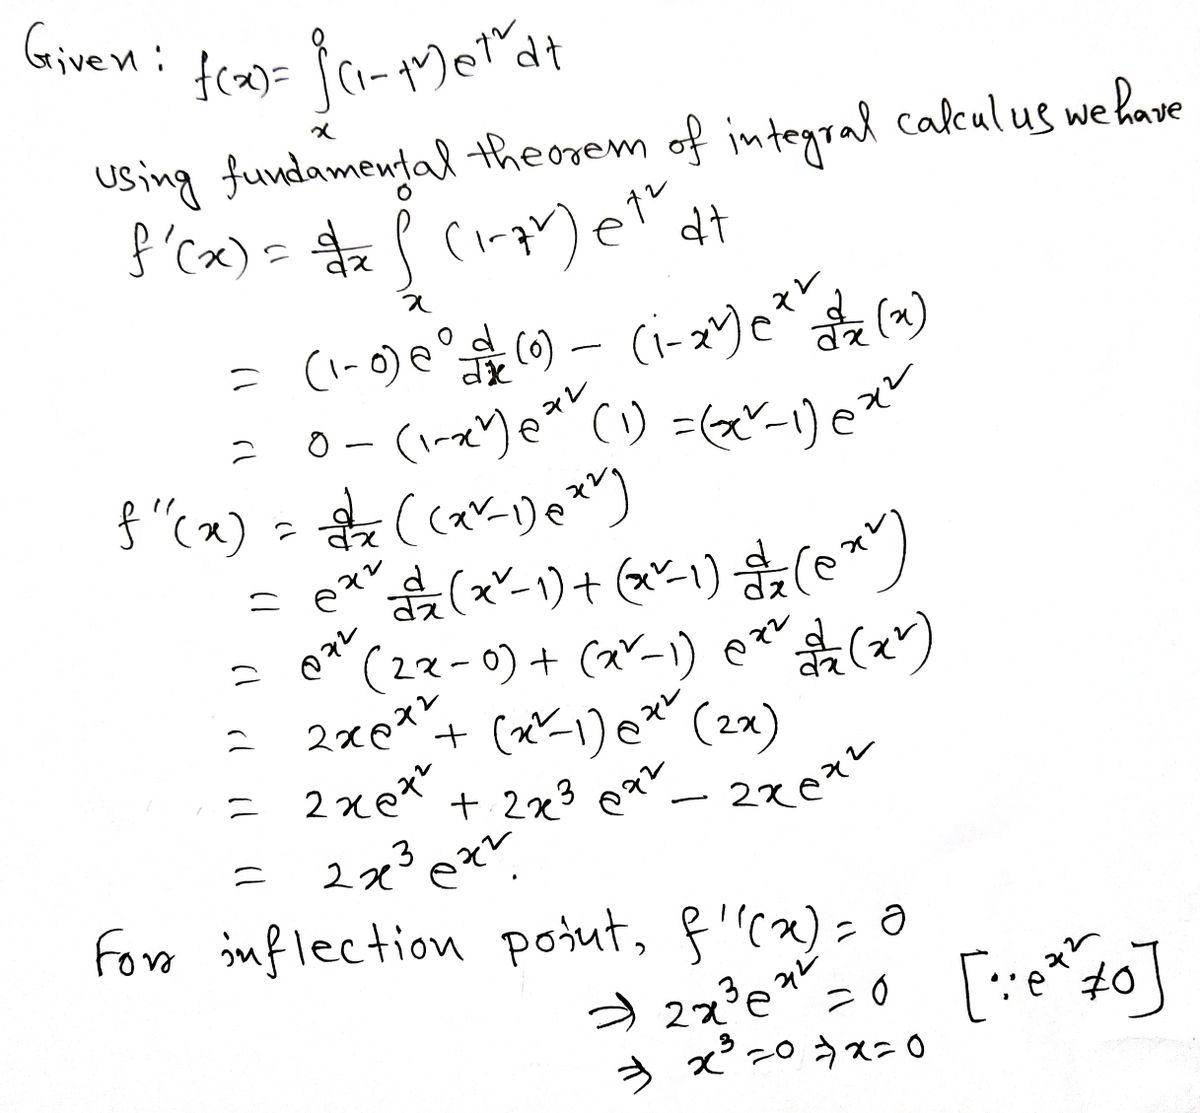 Given: f(x) = ∫ₓ⁰ (1-t²)e^{t²} dt
using fundamental theorem of integral calculus we have
f'(x) = d/dx ∫ₓ⁰ (1-t²) e^{t²} dt
= (1-0) e⁰ d/dx (0) - (1-x²) e^{x²} d/dx (x)
= 0 - (1-x²) e^{x²} (1) = (x²-1) e^{x²}
f''(x) = d/dx ((x²-1) e^{x²})
= e^{x²} d/dx (x²-1) + (x²-1) d/dx (e^{x²})
= e^{x²} (2x-0) + (x²-1) e^{x²} d/dx (x²)
= 2xe^{x²} + (x²-1) e^{x²} (2x)
= 2xe^{x²} + 2x³ e^{x²} - 2x e^{x²}
= 2x³ e^{x²}.
For inflection point, f''(x) = 0
⇒ 2x³e^{x²} = 0 [∵ e^{x²} ≠ 0]
⇒ x³ = 0 ⇒ x = 0